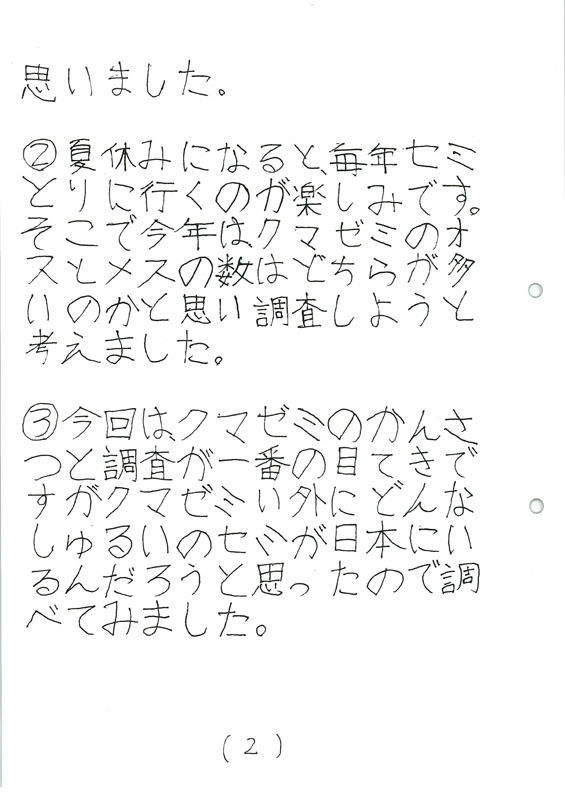 思いました。
②夏休みになると、毎年セミ
とりに行くのが楽しみです。
そこで今年はクマゼミのオ
スとメスの数はどちらが多
いのかと思い調査しようと
考えました。
③今回は、クマゼミのかんさ
つと調査が一番の目てきで
すがクマゼミい外にどんな
しゅるいのセミが日本にい
るんだろうと思ったので調
べてみました。
(2)